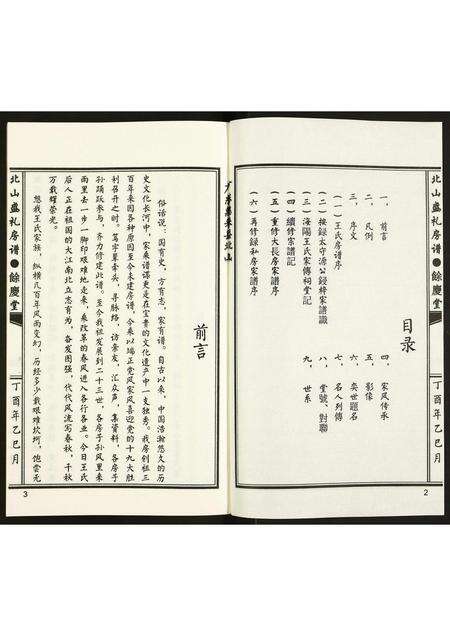 北山盛礼房谱●餘慶堂
丁酉年乙巳月
2
目录
一、前言
二、凡例
三、序文
(一)王氏房谱序
(二)按録太守源公錢粹家譜識
(三)海陽王氏家傳祠堂記
(四)續修宗譜記
(五)重修大長房家譜序
(六)再修録私房家譜序
四、家风传承
五、影像
六、奕世題名
七、名人列傳
八、堂號、對聯
九、世系
广东惠来县北山
前言
俗话说:国有史,方有志,家有谱。自古以来,中国浩瀚悠久的历
史文化长河中,家乘谱谍更是在宝贵的文化遗产中一支独秀。我房创祖三
百年来因各种原因至今未建房谱,今乘以端正党风家风喜迎党的十九大胜
利召开之时。笃字辈牵头,寻脉络,访亲友,汇众声,集资料,各房子
孙踊跃参与,齐力修建此谱。至今我祖发展到二十三世,各房子孙风里来
雨里去一步一脚印艰难地走来,乘改革的春风进入各行各业。今日王氏
后人正在祖国的大江南北立志有为,奋发图强,代代风流写春秋,千秋
万载耀荣光。
悠我王氏家族,纵横几百年风雨变幻,历经多少艰难坎坷,他尝无
北山盛礼房谱●餘慶堂
丁酉年乙巳月
3